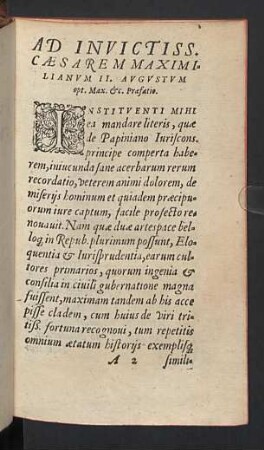 AD INVICTISS.
CÆSAREM MAXIMI-
LIANVM II. AVGVSTVM
opt. Max. &c. Præfatio.
INSTITVENTI MIHI
ea mandare literis, quæ
de Papiniano Iuriscons.
principe comperta habe-
rem, iniucunda sane acerbarum rerum
recordatio, veterem animi dolorem, de
miserijs hominum et quidem præcipu-
orum iure captum, facile profecto re-
nouauit. Nam quæ duæ artes pace bel-
loq; in Repub. plurimum possunt, Elo-
quentia & Iurisprudentia, earum cul-
tores primarios, quorum ingenia &
consilia in ciuili gubernatione magna
fuissent, maximam tandem ab his acce
pisse cladem, cum huius de viri tri-
stiss. fortuna recognoui, tum repetitis
omnium ætatum historijs exemplisq;
A 2 simili-